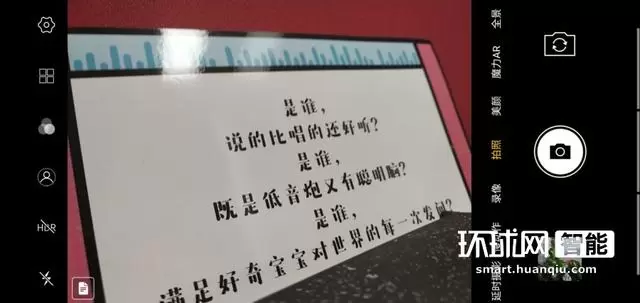 是谁，
说的比唱的还好听？
是谁，
既是低音炮又有聪明脑？
是谁，
满足好奇宝宝对世界的每一次发问？
HDR
全景
魔力AR
美颜
拍照
录像
延时摄影
环球网 智能
smart.huanqiu.com